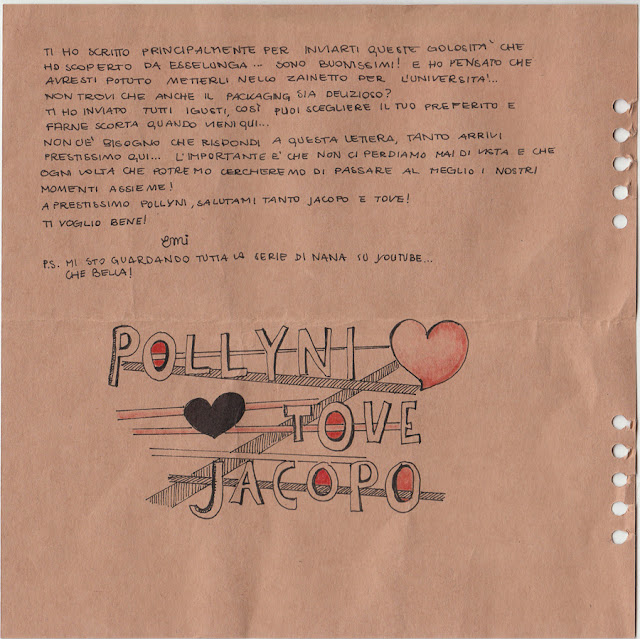 TI HO SCRITTO PRINCIPALMENTE PER INVIARTI QUESTE GOLOSITA' CHE
HO SCOPERTO DA ESSELUNGA... SONO BUONISSIMI! E HO PENSATO CHE
AVRESTI POTUTO METTERLI NELLO ZAINETTO PER L'UNIVERSITA'...
NON TROVI CHE ANCHE IL PACKAGNG SIA DELIZIOSO?
TI HO INVIATO TUTTI I GUSTI, COSÌ PUOI SCEGLIERE IL TUO PREFERITO E
FARNE SCORTA QUANDO VIENI QUI...
NON C'È BISOGNO CHE RISPONDI A QUESTA LETTERA, TANTO ARRIVI
PRESTISSIMO QUI... L'IMPORTANTE E' CHE NON CI PERDIAMO MAI DI VISTA E CHE
OGNI VOLTA CHE POTREMO CERCHEREMO DI PASSARE AL MEGLIO I NOSTRI
MOMENTI ASSIEME!
A PRESTISSIMO POLLYNI, SALUTAMI TANTO JACOPO E TOVE!
TI VOGLIO BENE!
emi
P.S. MI STO GUARDANDO TUTTA LA SERIE DI NANA SU YOUTUBE...
CHE BELLA!
POLLYNI
TOVE
JACOPO